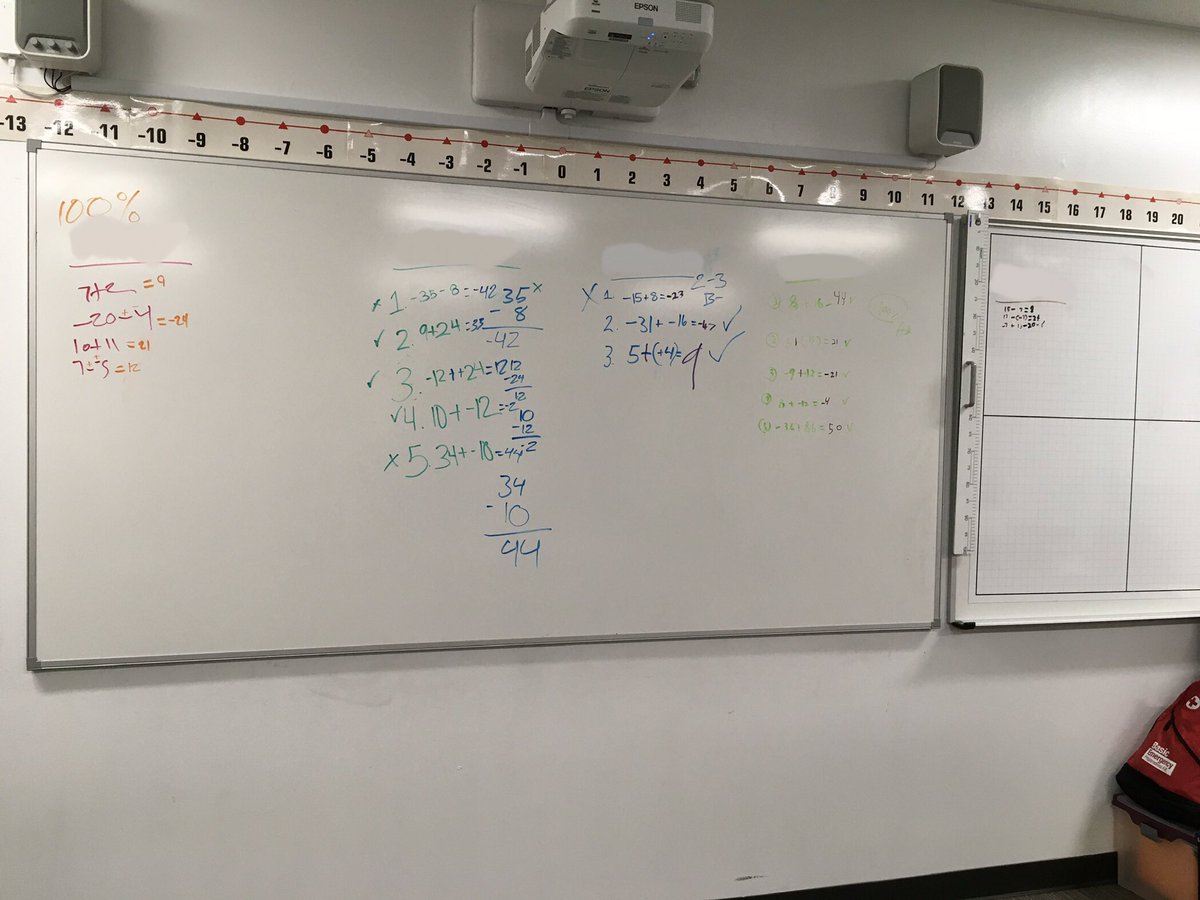 EPSON
EPSON
-13 -12 -11 -10 -9 -8 -7 -6 -5 -4 -3 -2 -1 0 1 2 3 4 5 6 7 8 9 10 11 12 13 14 15 16 17 18 19 20
100%
7+2 = 9
-20 + -4 = -24
10+11 = 21
= 12
x 1 -35-8=-42
35 x
- 8
-42
✓ 2. 9+24=33
✓ 3. -12++24=12
12
-24
12
✓ 4. 10+-12=-2
10
-12
-2
x 5. 34+-10=44
34
- 10
44
2-3
B-
X 1. -15+8=-23
2. -31+-16=-47 ✓
3. 5+(+4)=9 ✓
= 21 ✓
3) -9+12=-21 ✓
+-12=-4 ✓
5) -36+86=50 ✓
Basic
Emergency